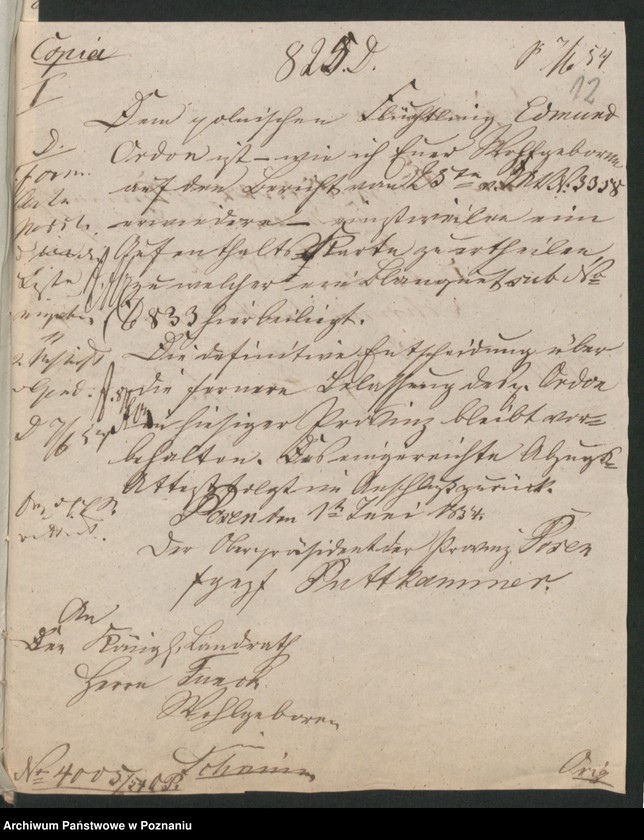 Copia
825. D.
pr 7/6 54
12
Dem polnischen Flüchtling Edmund
Ordon ist – wie ich Euer Wohlgeboren
auf den Bericht vom 5ten v. Mts. N. 3358
erwiedere – einstweilen eine
Aufenthalts Karte zu ertheilen,
zu welcher ein Blanquet sub No
833 hierbeiliegt.
Die definitive Entscheidung über
die fernere Belassung des p. Ordon
in hiesiger Provinz bleibt vor-
behalten. Das eingereichte Abzugs-
Attest folgt im Anschluß zurück.
Posen den 1t Juni 1854.
Der Oberpräsident der Provinz Posen
(gez) Puttkammer.
An
Den Königl. Landrath
Herrn Funck
Wohlgeboren
in
Schrimm
No 4005/54 O.P.
Orig
D.
Liste
D 7/6 54
Archiwum Państwowe w Poznaniu